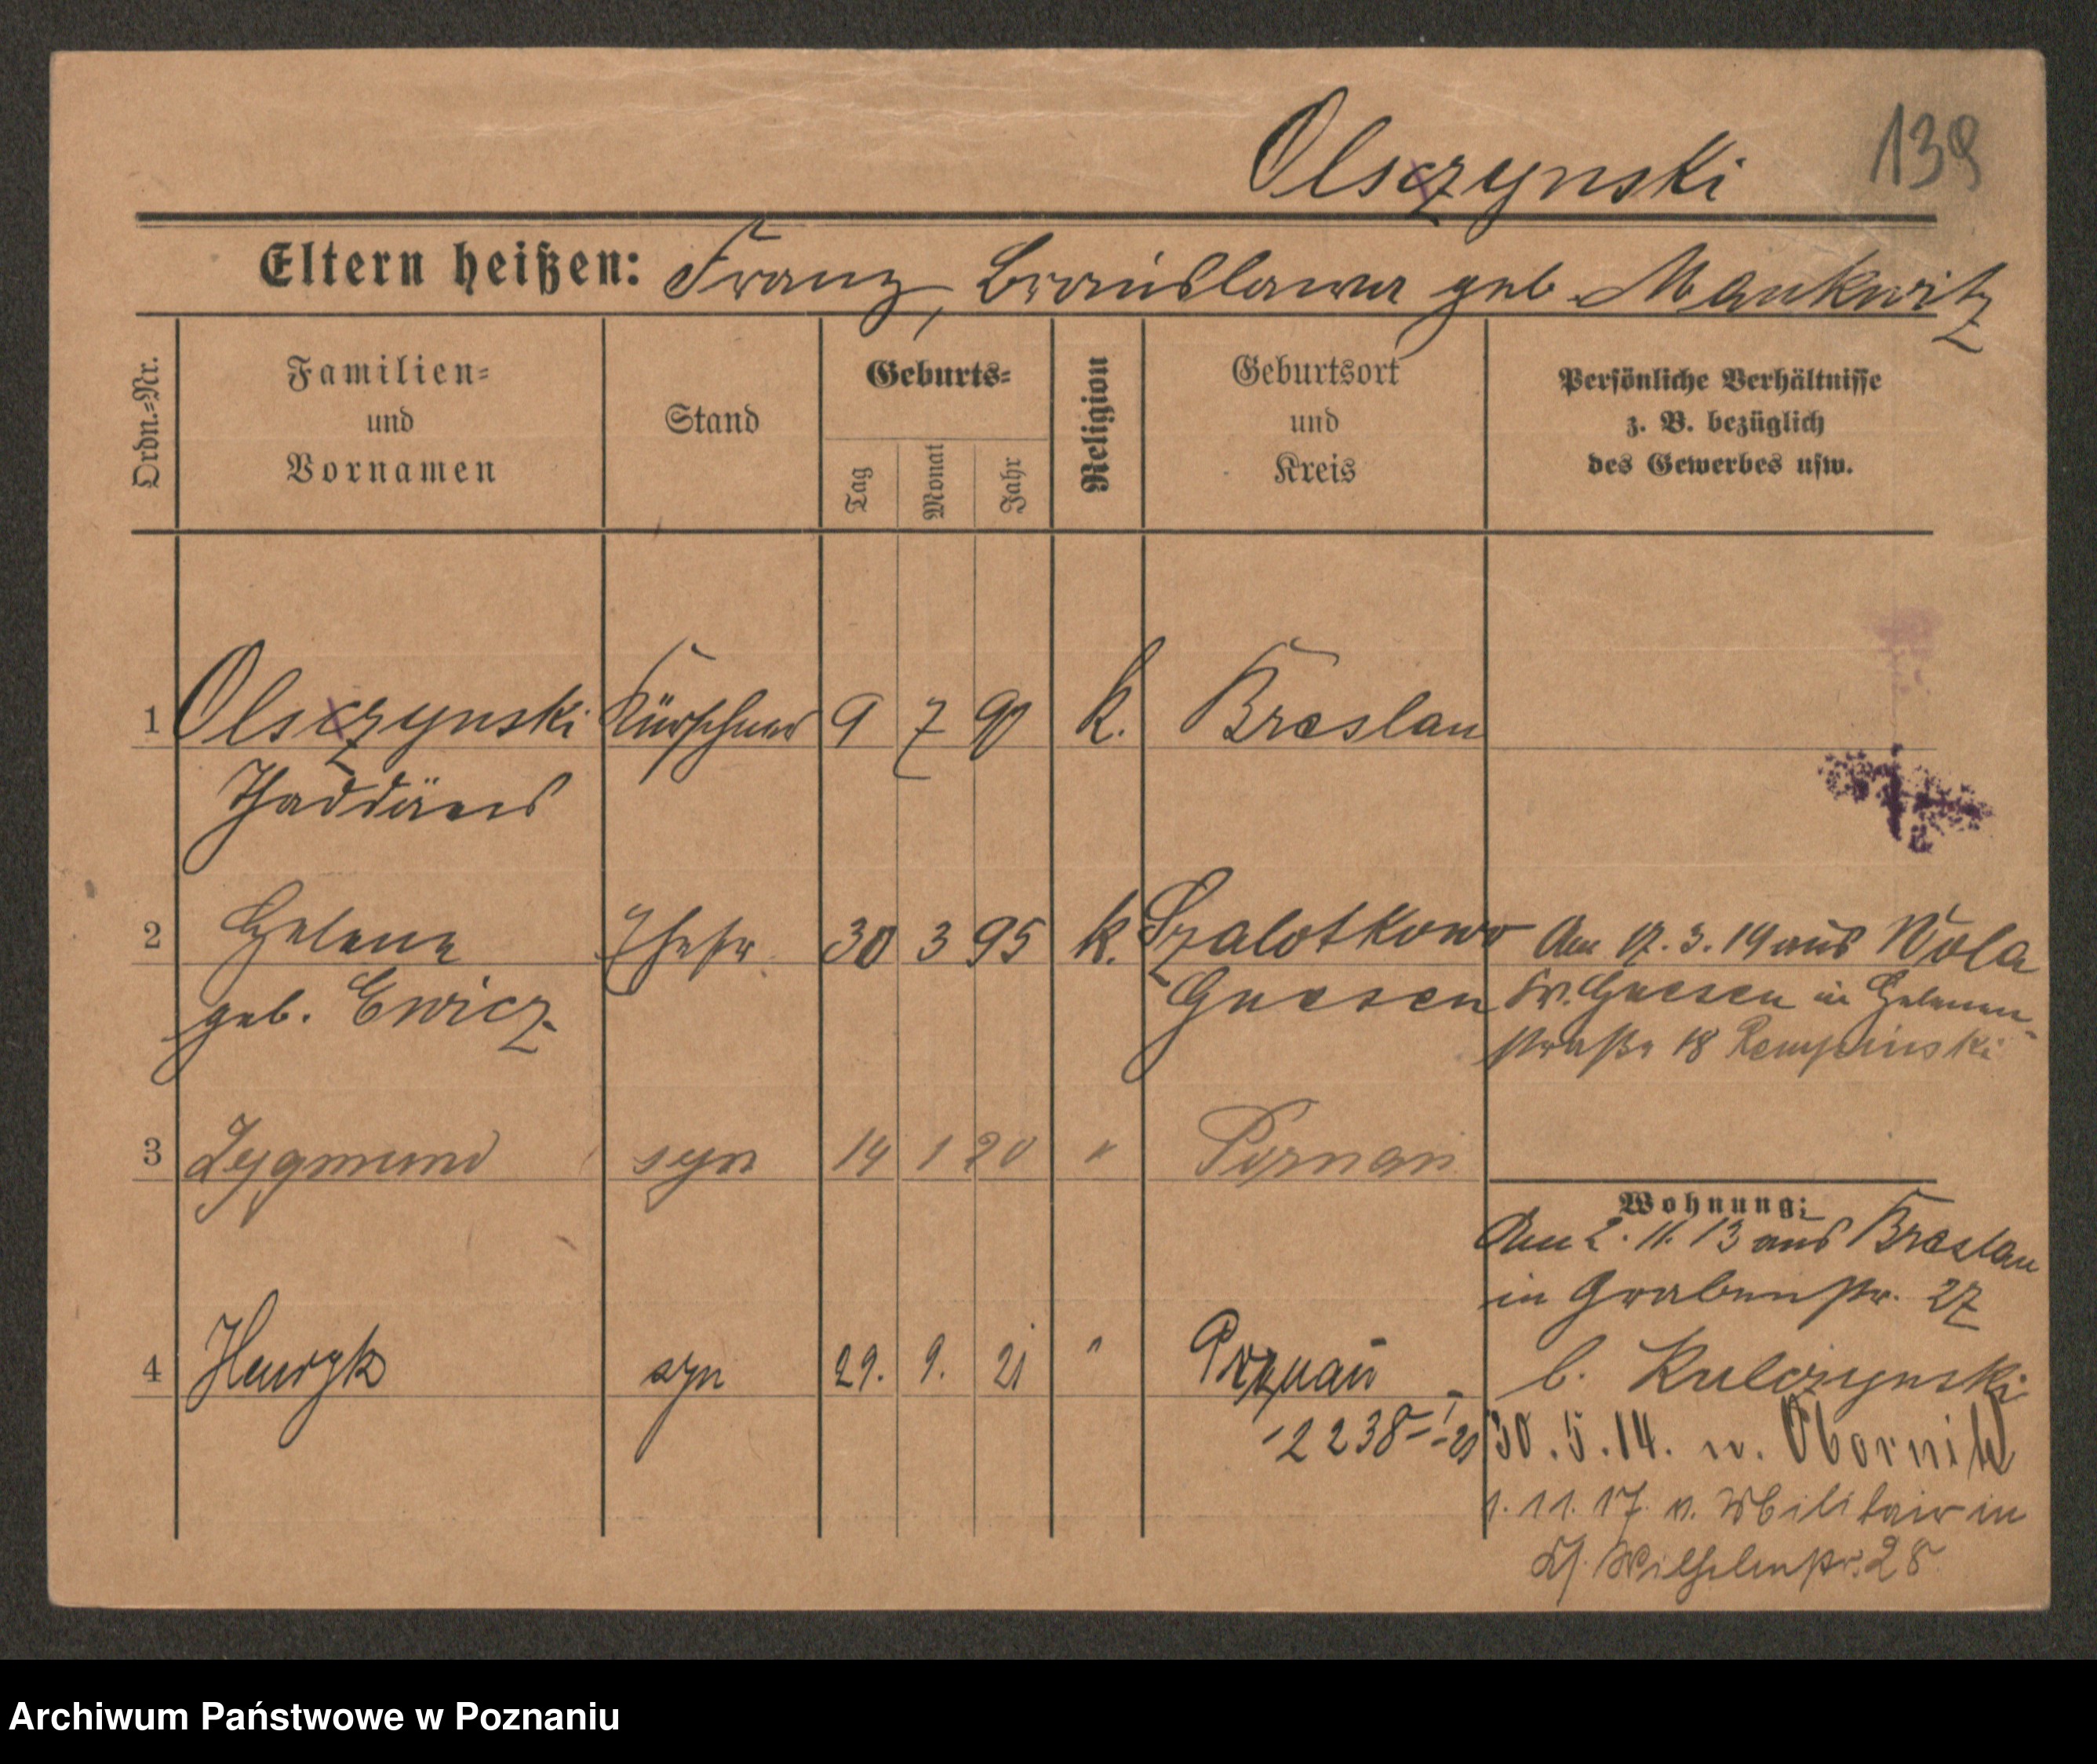 Olsczynski
139
Eltern heißen: Franz, Bronislawa geb. Mankwitz
Ordn.=Nr.
Familien=
und
Vornamen
Stand
Geburts=
Tag
Monat
Jahr
Religion
Geburtsort
und
Kreis
Persönliche Verhältnisse
z. B. bezüglich
des Gewerbes usw.
1 Olsczynski Kürschner 9 7 90 k. Breslau
Thaddäus
2 Helene Ehefr. 30 3 95 k. Szalotkowo
geb. Ewicz Gnesen
Am 17.3.19 aus Wola
Kr. Gnesen in Helenen-
straße 18 Rempinski
3 Zygmund syn 14 1 20 " Poznań
Wohnung:
Am 2.11.13 aus Breslau
in Grabenstr. 27
b. Kulczynski
4 Henryk syn 29. 9. 21 " Poznań
30.5.14. n. Obornik
1.11.17. v. Militair in
Wilhelmstr. 28
Archiwum Państwowe w Poznaniu